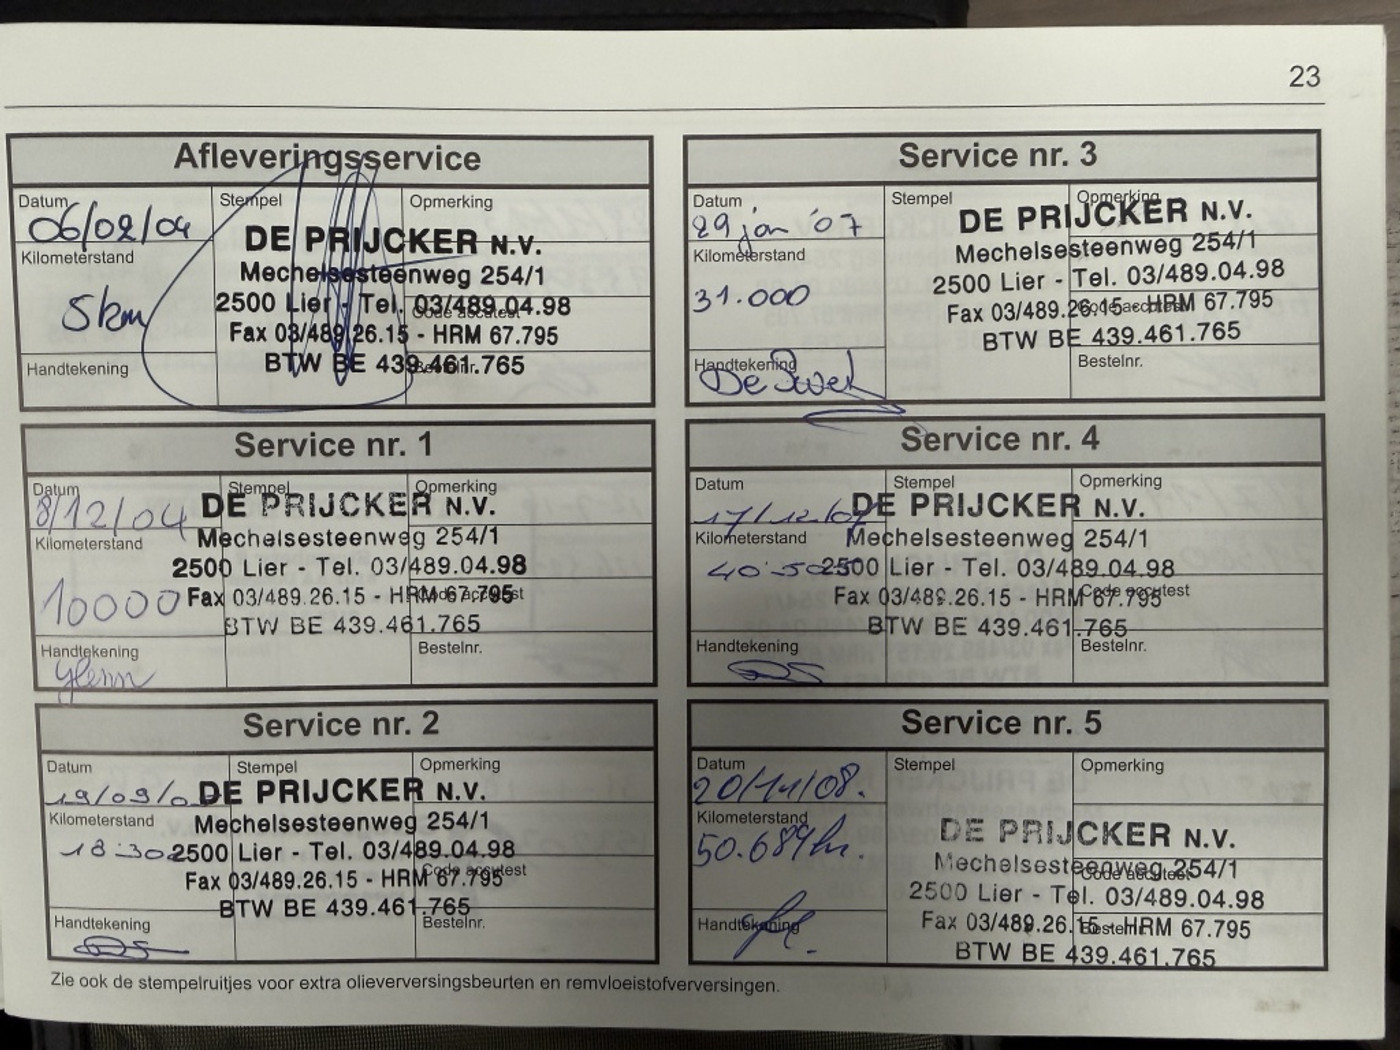 23
Afleveringsservice
Datum Stempel Opmerking
06/02/04
DE PRIJCKER N.V.
Kilometerstand
Mechelsesteenweg 254/1
5km
2500 Lier - Tel. 03/489.04.98
Code accutest
Fax 03/489.26.15 - HRM 67.795
Handtekening
BTW BE 439.461.765
Bestelnr.
Service nr. 1
Datum Stempel Opmerking
8/12/04
DE PRIJCKER N.V.
Kilometerstand
Mechelsesteenweg 254/1
2500 Lier - Tel. 03/489.04.98
10000
Fax 03/489.26.15 - HRM 67.795
Code accutest
BTW BE 439.461.765
Handtekening
Bestelnr.
Glenn
Service nr. 2
Datum Stempel Opmerking
DE PRIJCKER N.V.
Kilometerstand
Mechelsesteenweg 254/1
2500 Lier - Tel. 03/489.04.98
Code accutest
Fax 03/489.26.15 - HRM 67.795
BTW BE 439.461.765
Handtekening
Bestelnr.
Service nr. 3
Datum Stempel Opmerking
29 jan '07
DE PRIJCKER N.V.
Kilometerstand
Mechelsesteenweg 254/1
31.000
2500 Lier - Tel. 03/489.04.98
Code accutest
Fax 03/489.26.15 - HRM 67.795
BTW BE 439.461.765
Handtekening
Bestelnr.
Service nr. 4
Datum Stempel Opmerking
17/12/07
DE PRIJCKER N.V.
Kilometerstand
Mechelsesteenweg 254/1
2500 Lier - Tel. 03/489.04.98
Code accutest
Fax 03/489.26.15 - HRM 67.795
BTW BE 439.461.765
Handtekening
Bestelnr.
Service nr. 5
Datum Stempel Opmerking
20/11/08.
Kilometerstand
50.689km.
DE PRIJCKER N.V.
Mechelsesteenweg 254/1
Code accutest
2500 Lier - Tel. 03/489.04.98
Handtekening
Fax 03/489.26.15 - HRM 67.795
Bestelnr.
BTW BE 439.461.765
Zie ook de stempelruitjes voor extra olieverversingsbeurten en remvloeistofverversingen.